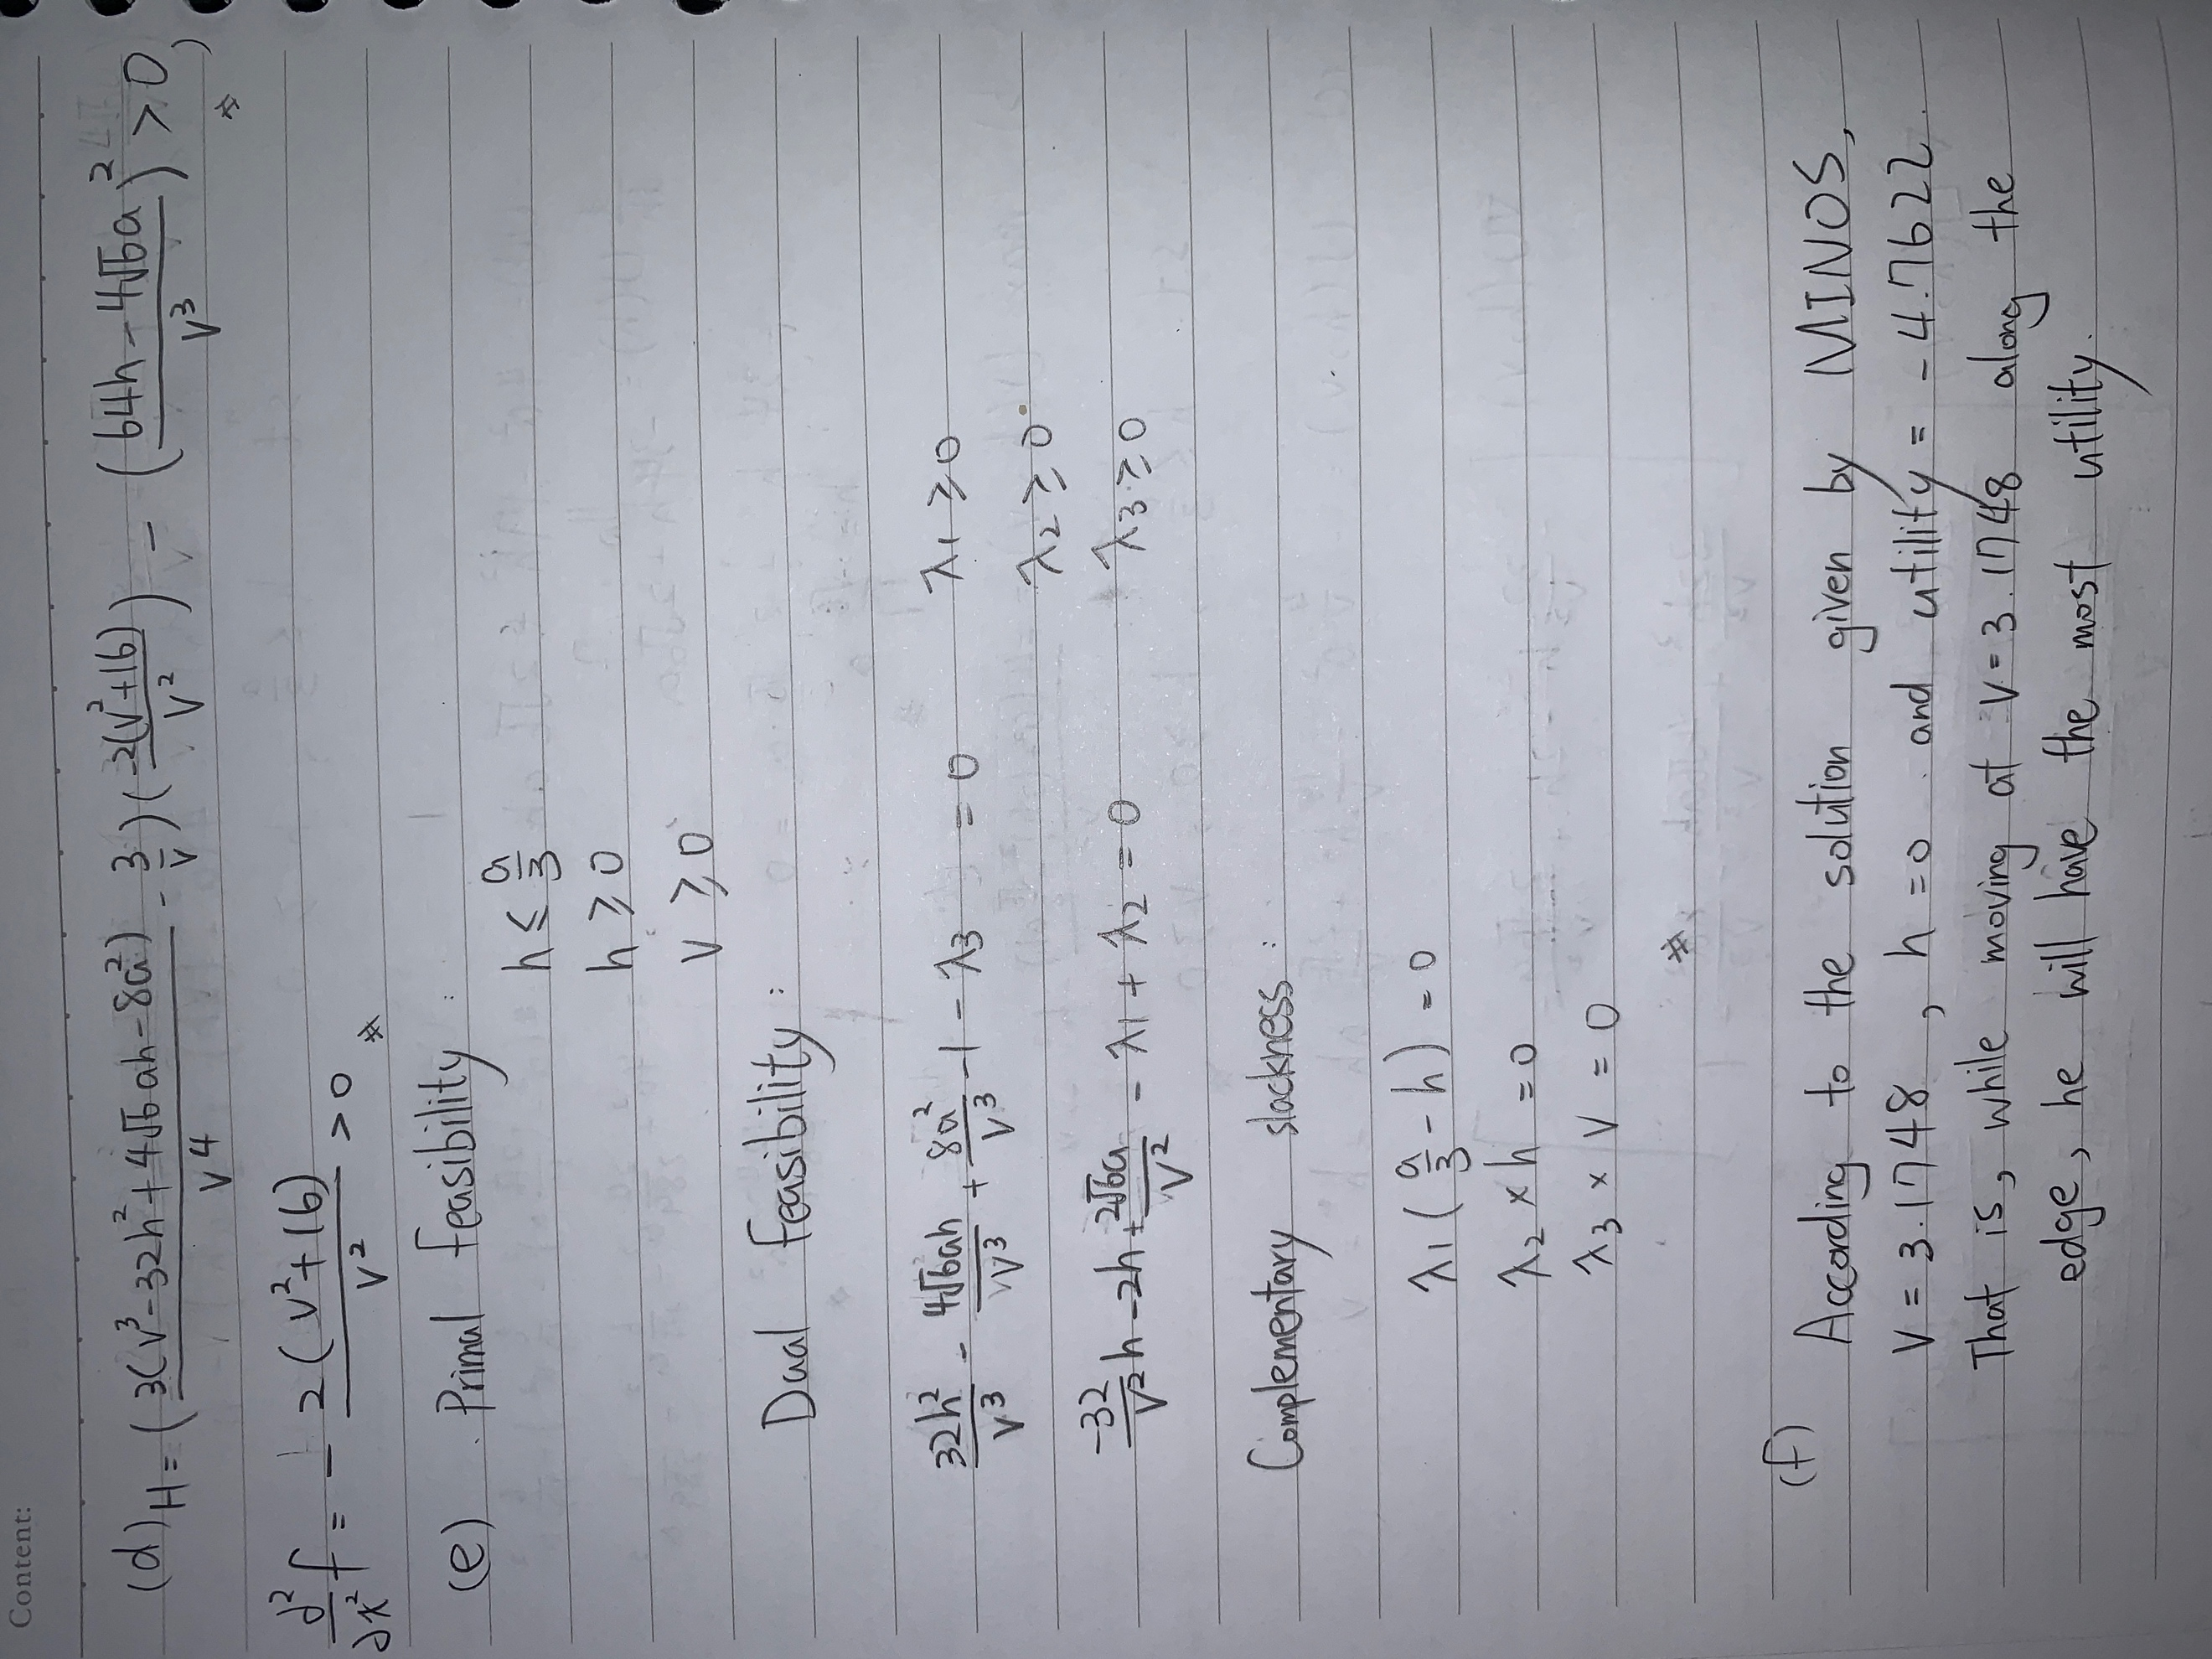 Content:
(d) H = ( 3(v³ - 32h² + 4√6ah - 8a²) / v⁴ - 3/v ) ( -2(v²+16) / v² ) - ( (64h - 4√6a) / v³ )² > 0 ,
#
∂²/∂x² f = - 2(v²+16) / v² > 0 #
(e) Primal feasibility :
h ≤ a/3
h ≥ 0
v ≥ 0
Dual feasibility :
32h²/v³ - 4√6ah/v³ + 8a²/v³ - 1 - λ3 = 0 λ1 ≥ 0
λ2 ≥ 0
-32/v² h - 2h + 2√6a/v² - λ1 + λ2 = 0 λ3 ≥ 0
Complementary slackness :
λ1 ( a/3 - h ) = 0
λ2 × h = 0
λ3 × v = 0 #
(f) According to the solution given by MINOS,
v = 3.1748 , h = 0 and utility = - 4.7622 .
That is, while moving at v = 3.1748 along the
edge, he will have the most utility.